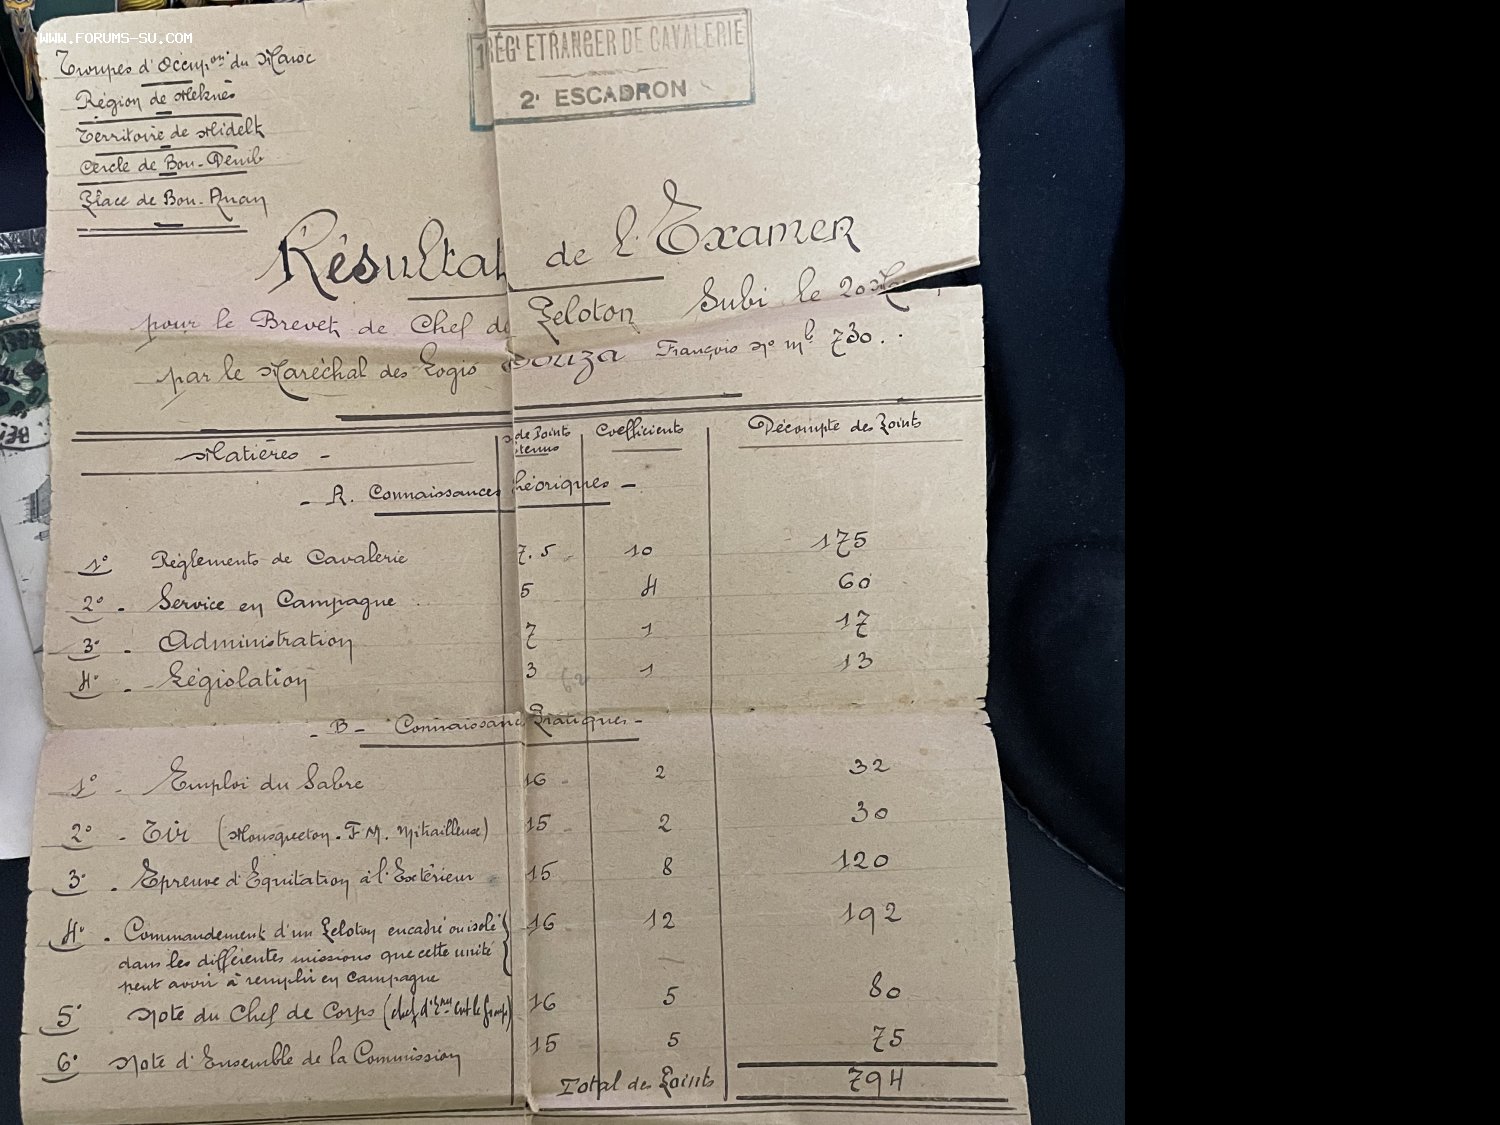 WWW.FORUMS-SU.COM
Troupes d'Occupon du Maroc
Région de Meknès
Territoire de Midelt
Cercle de Bou-Denib
Place de Bou-Anan
1 RÉGt ETRANGER DE CAVALERIE
2e ESCADRON
Résultat de l'Examen
pour le Brevet de Chef de Peloton Subi le 20
par le Maréchal des Logis Souza François No Ml 730..
Matières - de Points Coefficients Décompte des Points
tenus
- A. Connaissances héoriques -
1° Règlements de Cavalerie 7.5 10 175
2° - Service en Campagne 5 4 60
3° - Administration 7 1 17
4° - Législation 3 1 13
- B - Connaissanc Pratiques -
1° - Emploi du Sabre 16 - 2 32
2° - Tir (Mousqueton. F.M. Mitrailleuse) 15 - 2 30
3° - Epreuve d'Equitation à l'Extérieur 15 8 120
4° - Commandement d'un Peloton encadré ou isolé 16 12 192
dans les différentes missions que cette unité
peut avoir à remplir en Campagne
5° Note du Chef de Corps 16 5 80
6° Note d'Ensemble de la Commission 15 5 75
Total des Points 794